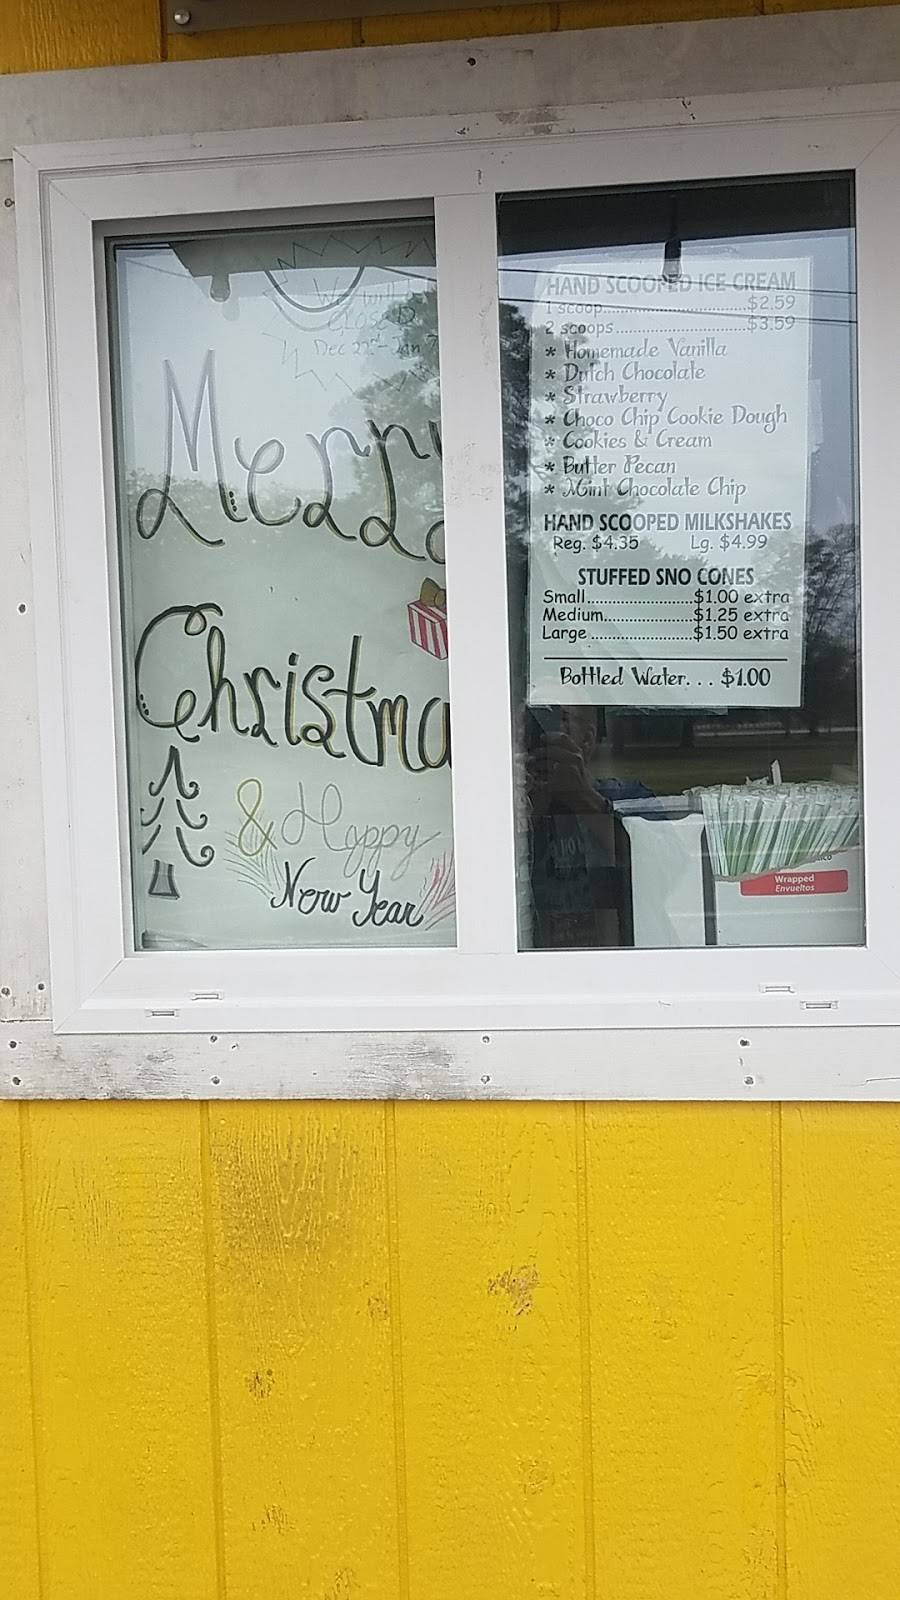 We will
CLOSED
Dec 22nd - Jan 7
Merry
Christma
& Happy
New Year
HAND SCOOPED ICE CREAM
1 scoop..............................$2.59
2 scoops.............................$3.59
* Homemade Vanilla
* Dutch Chocolate
* Strawberry
* Choco Chip Cookie Dough
* Cookies & Cream
* Butter Pecan
* Mint Chocolate Chip
HAND SCOOPED MILKSHAKES
Reg. $4.35 Lg. $4.99
STUFFED SNO CONES
Small.......................$1.00 extra
Medium...................$1.25 extra
Large ......................$1.50 extra
Bottled Water. . . $1.00
Wrapped
Envueltos